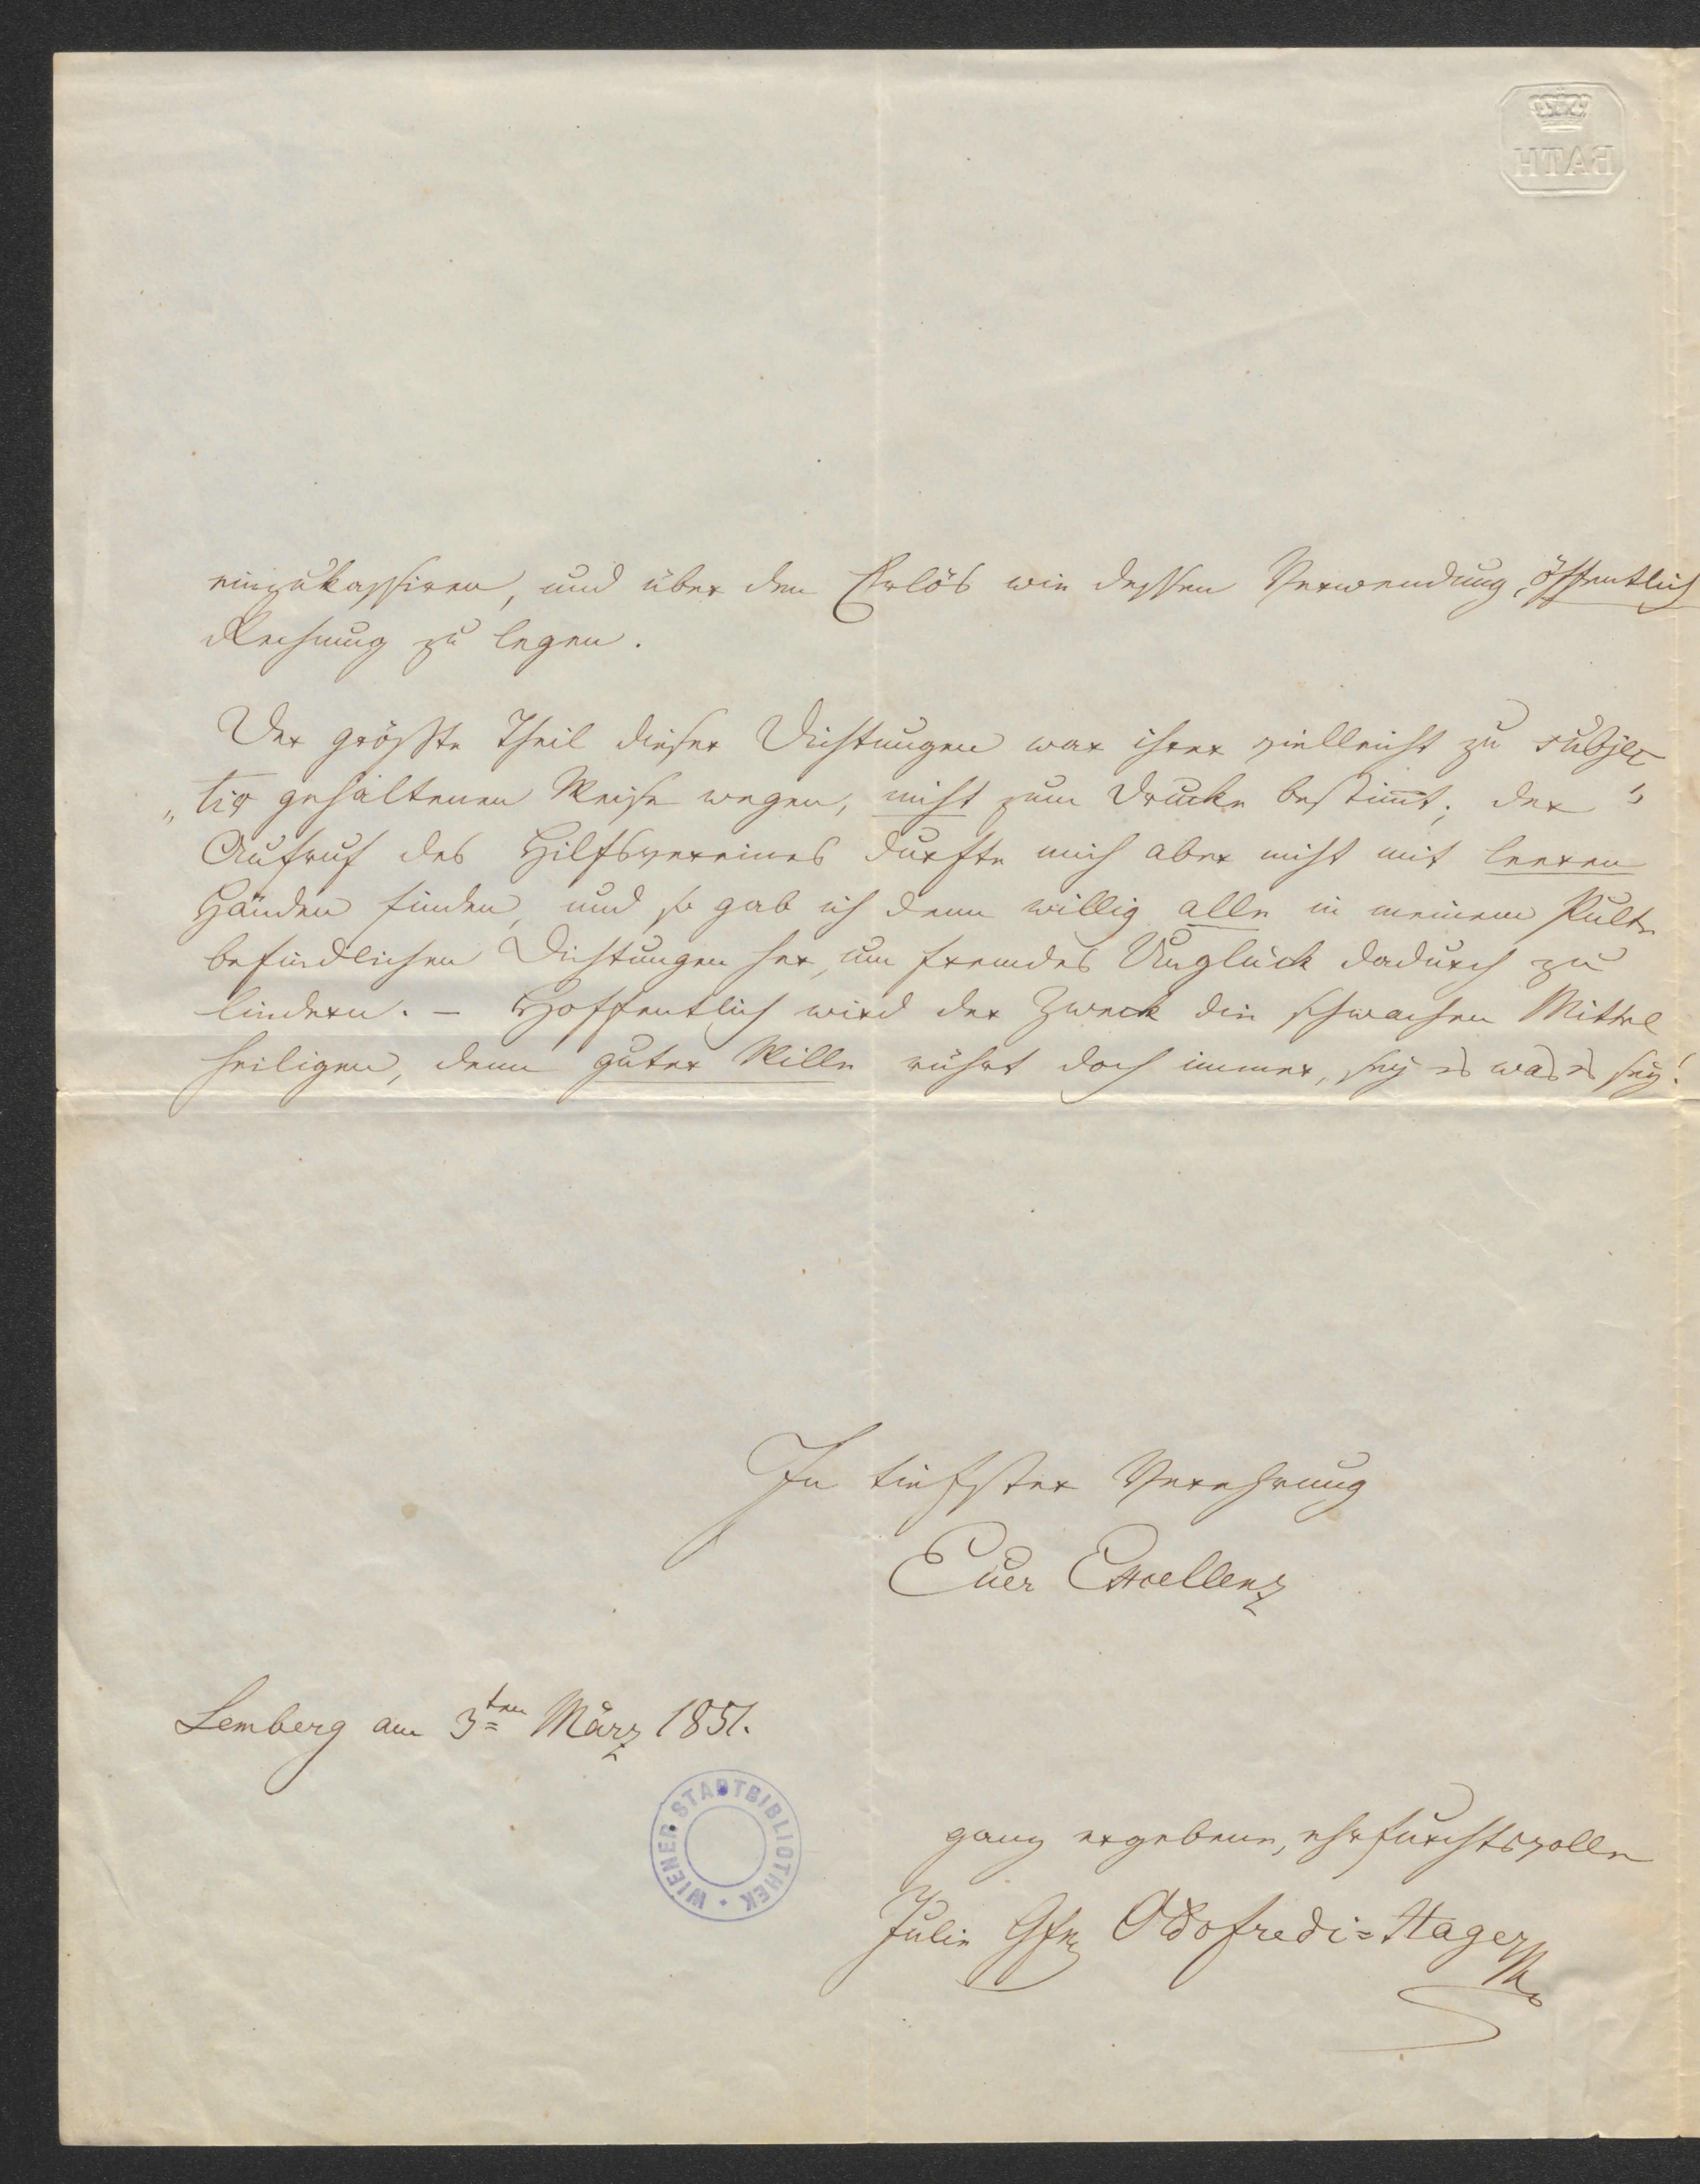 BATH
einzukassiren, und über den Erlös wie dessen Verwendung, öffentlich
Rechnung zu legen.
Der größte Theil dieser Dichtungen war ihrer vielleicht zu subjec
„tiv gehaltenen Weise wegen, nicht zum Drucke bestimt; der
Aufruf des Hilfsvereines durfte mich aber nicht mit leeren
Händen finden, und so gab ich denn willig alle in meinem Pulte
befindlichen Dichtungen her, um fremdes Unglück dadurch zu
lindern. – Hoffentlich wird der Zweck die schwachen Mittel
heiligen, denn guter Wille rührt doch immer, sey es was es sey!
In tiefster Verehrung
Euer Excellenz
Lemberg am 3ten März 1851.
WIENER STADTBIBLIOTHEK
ganz ergebene, ehrfurchtsvolle
Julie Gfn Oldofredi=Hager